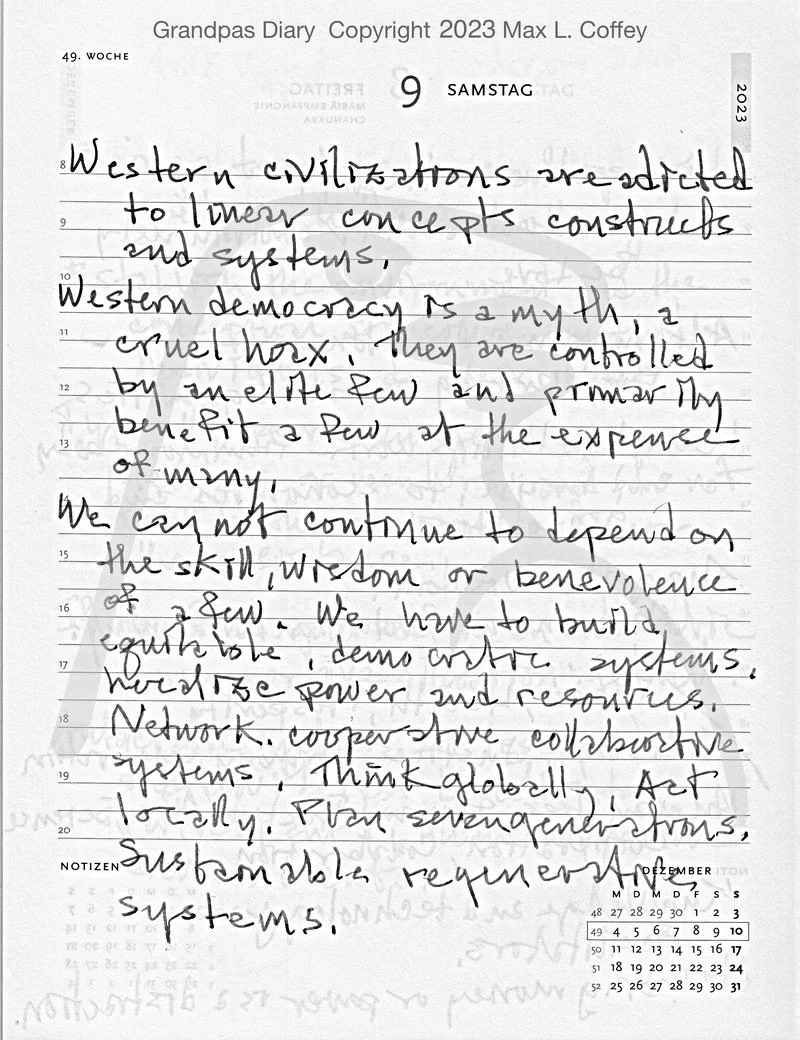 Grandpas Diary Copyright 2023 Max L. Coffey
49. WOCHE
9 SAMSTAG
2023
8 Western civilizations are adicted
9 to linear concepts constructs
and systems.
10
Western democracy is a myth, a
11 cruel hoax. They are controlled
12 by an elite few and primarily
13 benefit a few at the expense
of many.
We can not continue to depend on
15 the skill, wisdom or benevolence
16 of a few. We have to build
17 equitable, democratic systems.
localize power and resources.
18 Network. cooperative collaborative
19 systems. Think globally, Act
20 locally. Plan sevengenerations,
NOTIZEN Sustainable regenerative,
systems.
DEZEMBER
M D M D F S S
48 27 28 29 30 1 2 3
49 4 5 6 7 8 9 10
50 11 12 13 14 15 16 17
51 18 19 20 21 22 23 24
52 25 26 27 28 29 30 31